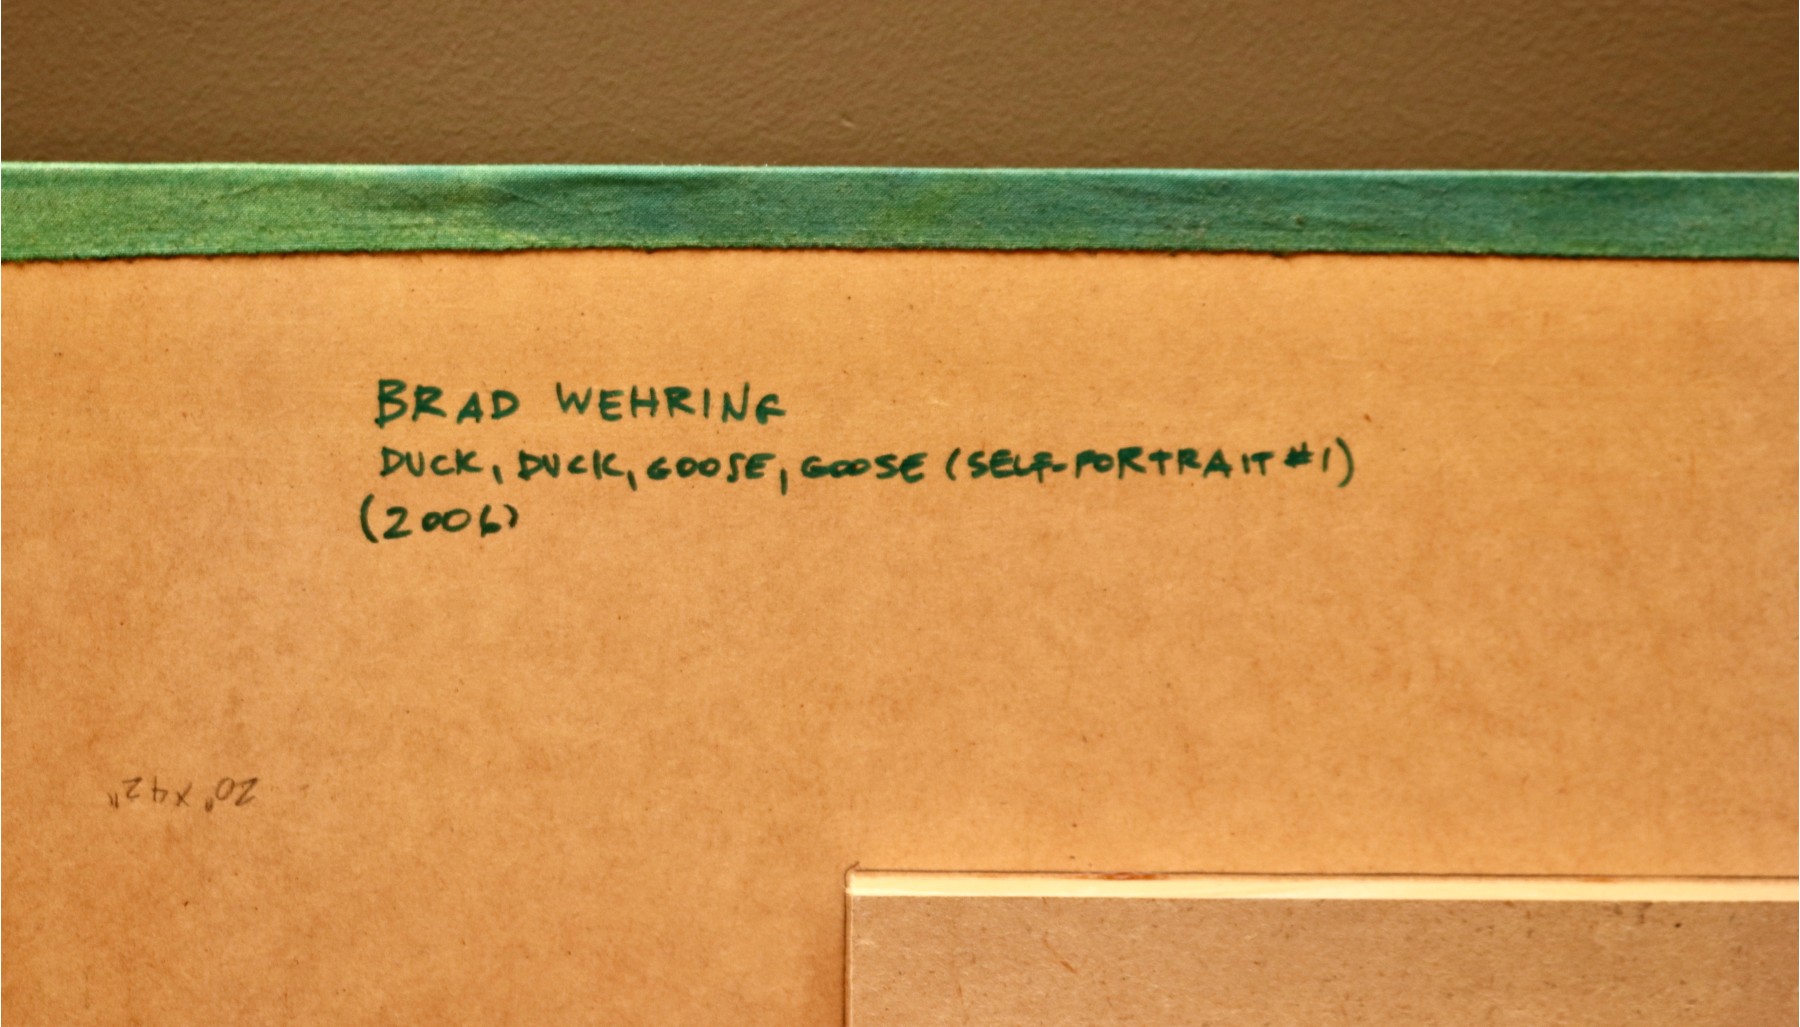 BRAD WEHRING
DUCK, DUCK, GOOSE, GOOSE (SELF-PORTRAIT #1)
(2006)
20" x 42"